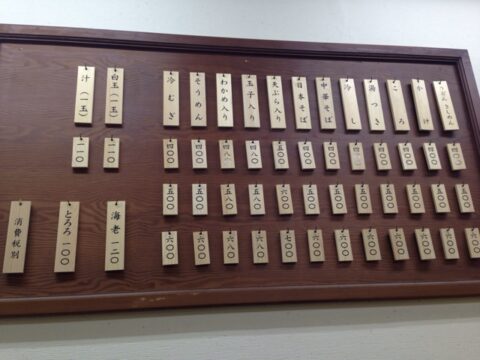 うどん きしめん
四〇〇
五〇〇
六〇〇
かけ
四〇〇
五〇〇
六〇〇
ころ
四〇〇
五〇〇
六〇〇
湯つき
四〇〇
五〇〇
六〇〇
冷し
四〇〇
五〇〇
六〇〇
中華そば
四〇〇
五〇〇
六〇〇
日本そば
四〇〇
五〇〇
六〇〇
天ぷら入り
五〇〇
六〇〇
七〇〇
玉子入り
四八〇
五八〇
六八〇
わかめ入り
四八〇
五八〇
六八〇
そうめん
四〇〇
五〇〇
六〇〇
冷むぎ
四〇〇
五〇〇
六〇〇
白玉（一玉）
一一〇
汁（一玉）
一一〇
海老 一二〇
とろろ 一〇〇
消費税別